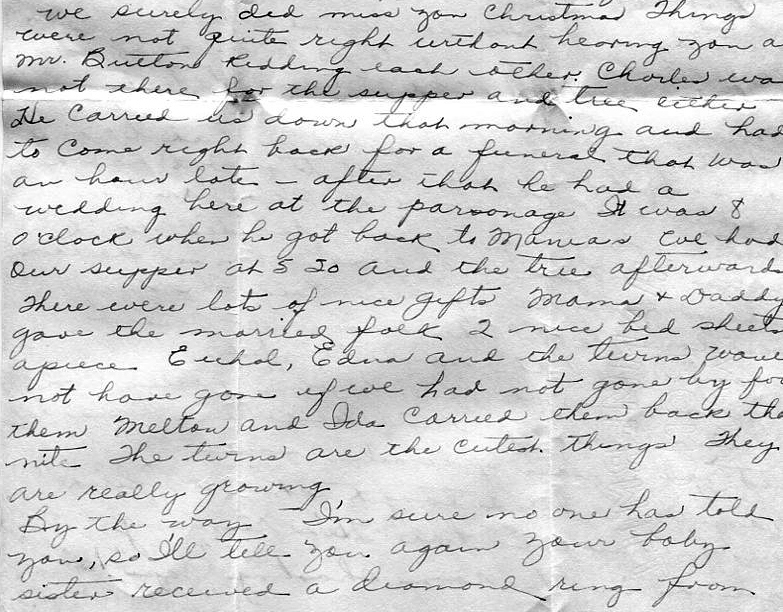 we surely did miss you Christmas Things
were not quite right without hearing you a
Mr. Button kidding each other. Charles was
not there for the supper and tree either
He carried us down that morning and had
to come right back for a funeral that was
an hour late - after that he had a
wedding here at the parsonage It was 8
o'clock when he got back to Mamas we had
our supper at 5 30 and the tree afterward
There were lots of nice gifts Mama & Daddy
gave the married folk 2 nice bed sheets
apiece Euhal, Edna and the twins would
not have gone if we had not gone by for
them Melton and Ida carried them back tha
nite The twins are the cutest things They
are really growing
By the way I'm sure no one has told
you, so I'll tell you again your baby
sister received a diamond ring from